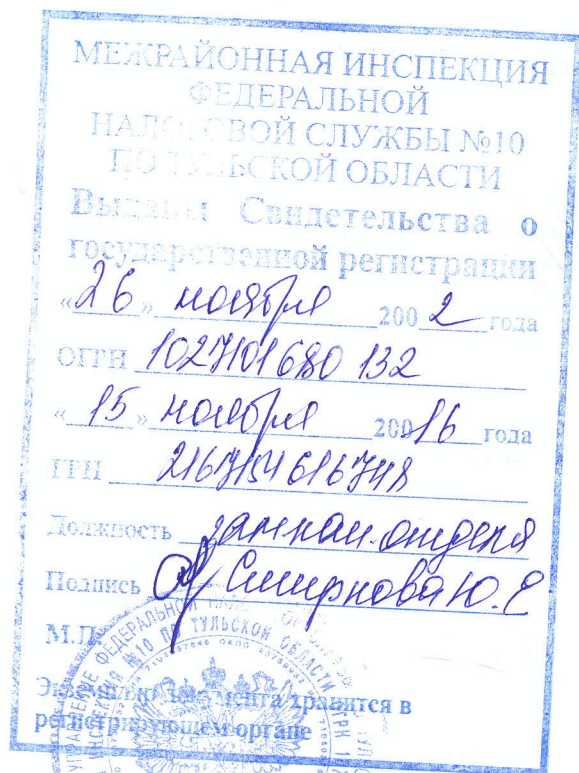 МЕЖРАЙОННАЯ ИНСПЕКЦИЯ
ФЕДЕРАЛЬНОЙ
НАЛОГОВОЙ СЛУЖБЫ №10
ПО ТУЛЬСКОЙ ОБЛАСТИ
Выданы Свидетельства о
государственной регистрации
«26» ноября 2002 года
ОГРН 1027101680132
«15» ноября 20016 года
ГРН 2167154616748
Должность зам.нач.отдела
Подпись Смирнова Ю.Е
М.П.
Экземпляр документа хранится в
регистрирующем органе
УПРАВЛЕНИЕ ФЕДЕРАЛЬНОЙ
ИНСПЕКЦИЯ №10 ПО ТУЛЬСКОЙ ОБЛАСТИ